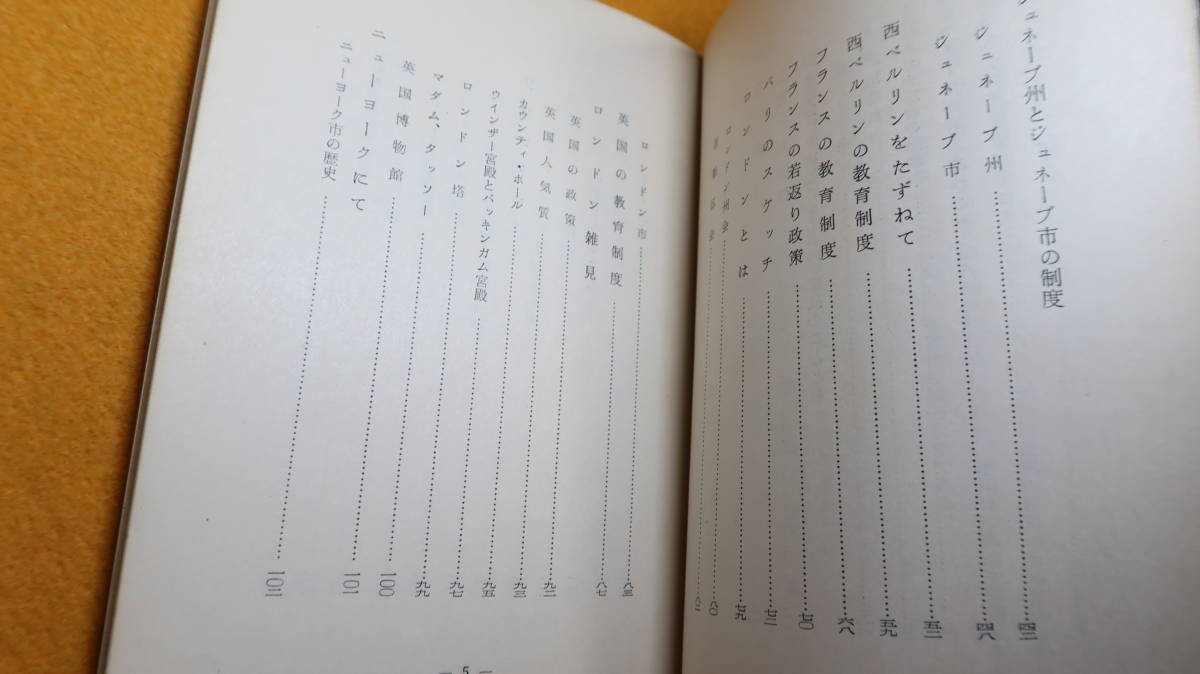 ジュネーブ州とジュネーブ市の制度
ジュネーブ州……四三
ジュネーブ市……四八
西ベルリンをたずねて……五二
西ベルリンの教育制度……五九
フランスの教育制度……六八
フランスの若返り政策……七〇
パリのスケッチ……七二
ロンドンとは……七九
ロンドン州会……八〇
……八二
ロンドン市……八三
英国の教育制度……八七
ロンドン雑見
英国の政策……九二
英国人気質……九三
カウンティ・ホール……九五
ウインザー宮殿とバッキンガム宮殿……九七
ロンドン塔……九九
マダム、タッソー……一〇〇
英国博物館……一〇一
ニューヨークにて
ニューヨーク市の歴史……一〇二
— 5 —